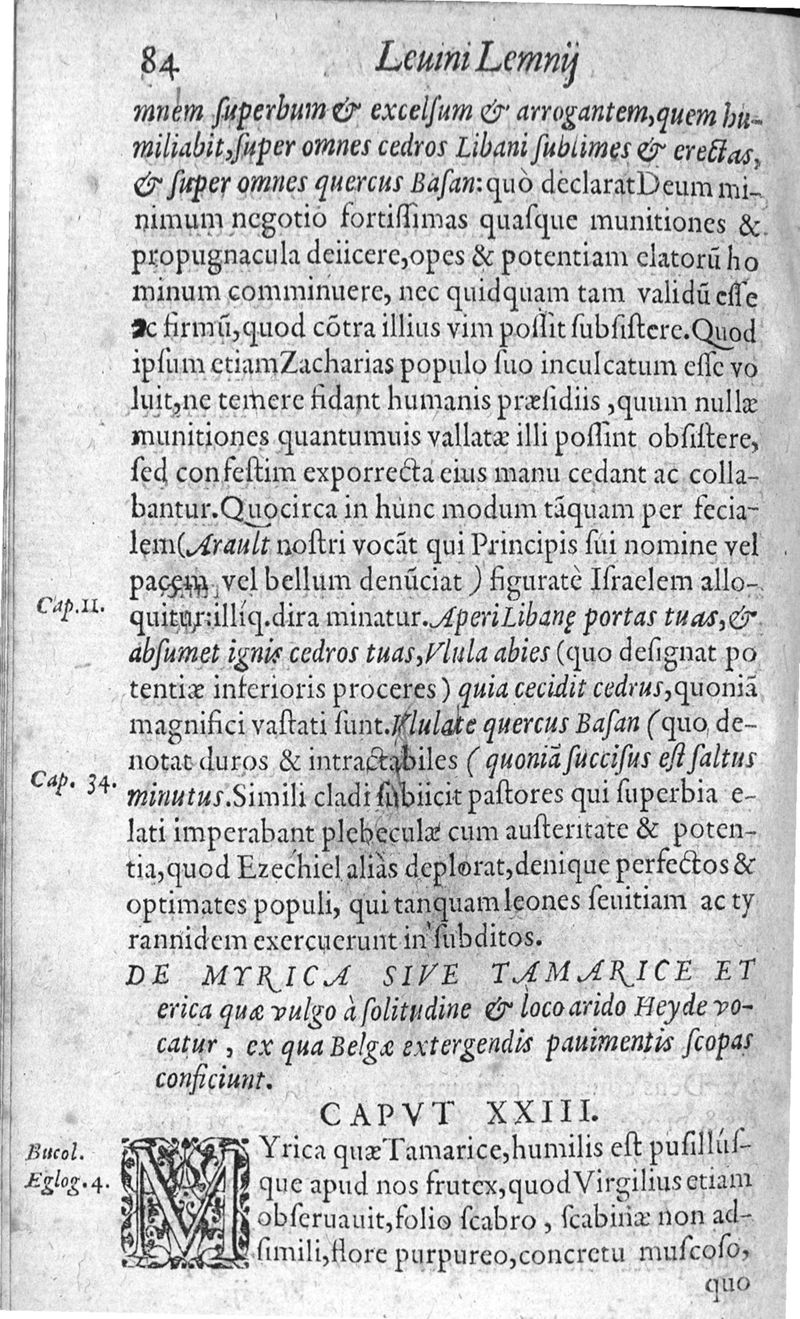 84 Leuini Lemnij
mnem ſuperbum & excelſum & arrogantem,quem hu-
miliabit,ſuper omnes cedros Libani ſublimes & erectas,
& ſuper omnes quercus Baſan:quò declarat Deum mi-
nimum negotio fortiſſimas quaſque munitiones &
propugnacula deiicere,opes & potentiam elatorū ho
minum comminuere, nec quidquam tam validū eſſe
ac firmū,quod cōtra illius vim poſſit ſubſiſtere.Quod
ipſum etiam Zacharias populo ſuo inculcatum eſſe vo
luit,ne temere fidant humanis præſidiis ,quum nullæ
munitiones quantumuis vallatæ illi poſſint obſiſtere,
ſed confeſtim exporrecta eius manu cedant ac colla-
bantur.Quocirca in hunc modum tāquam per fecia-
lem(Arault noſtri vocāt qui Principis ſui nomine vel
pacem vel bellum denūciat ) figuratè Iſraelem allo-
Cap.11.
quitur:illíq.dira minatur.Aperi Libanę portas tuas,&
abſumet ignis cedros tuas,Vlula abies (quo deſignat po
tentiæ inferioris proceres) quia cecidit cedrus,quoniā
magnifici vaſtati ſunt.Vlulate quercus Baſan (quo de-
notat duros & intractabiles ( quoniā ſucciſus eſt ſaltus
Cap. 34.
minutus.Simili cladi ſubiicit paſtores qui ſuperbia e-
lati imperabant plebeculæ cum auſteritate & poten-
tia,quod Ezechiel aliàs deplorat,denique perfectos &
optimates populi, qui tanquam leones ſeuitiam ac ty
rannidem exercuerunt in ſubditos.
DE MYRICA SIVE TAMARICE ET
erica quæ vulgo à ſolitudine & loco arido Heyde vo-
catur , ex qua Belgæ extergendis pauimentis ſcopas
conficiunt.
CAPVT XXIII.
Bucol.
Eglog.4.
MYrica quæ Tamarice,humilis eſt puſilluſ-
que apud nos frutex,quod Virgilius etiam
obſeruauit,folio ſcabro , ſcabinæ non ad-
ſimili,flore purpureo,concretu muſcoſo,
quo